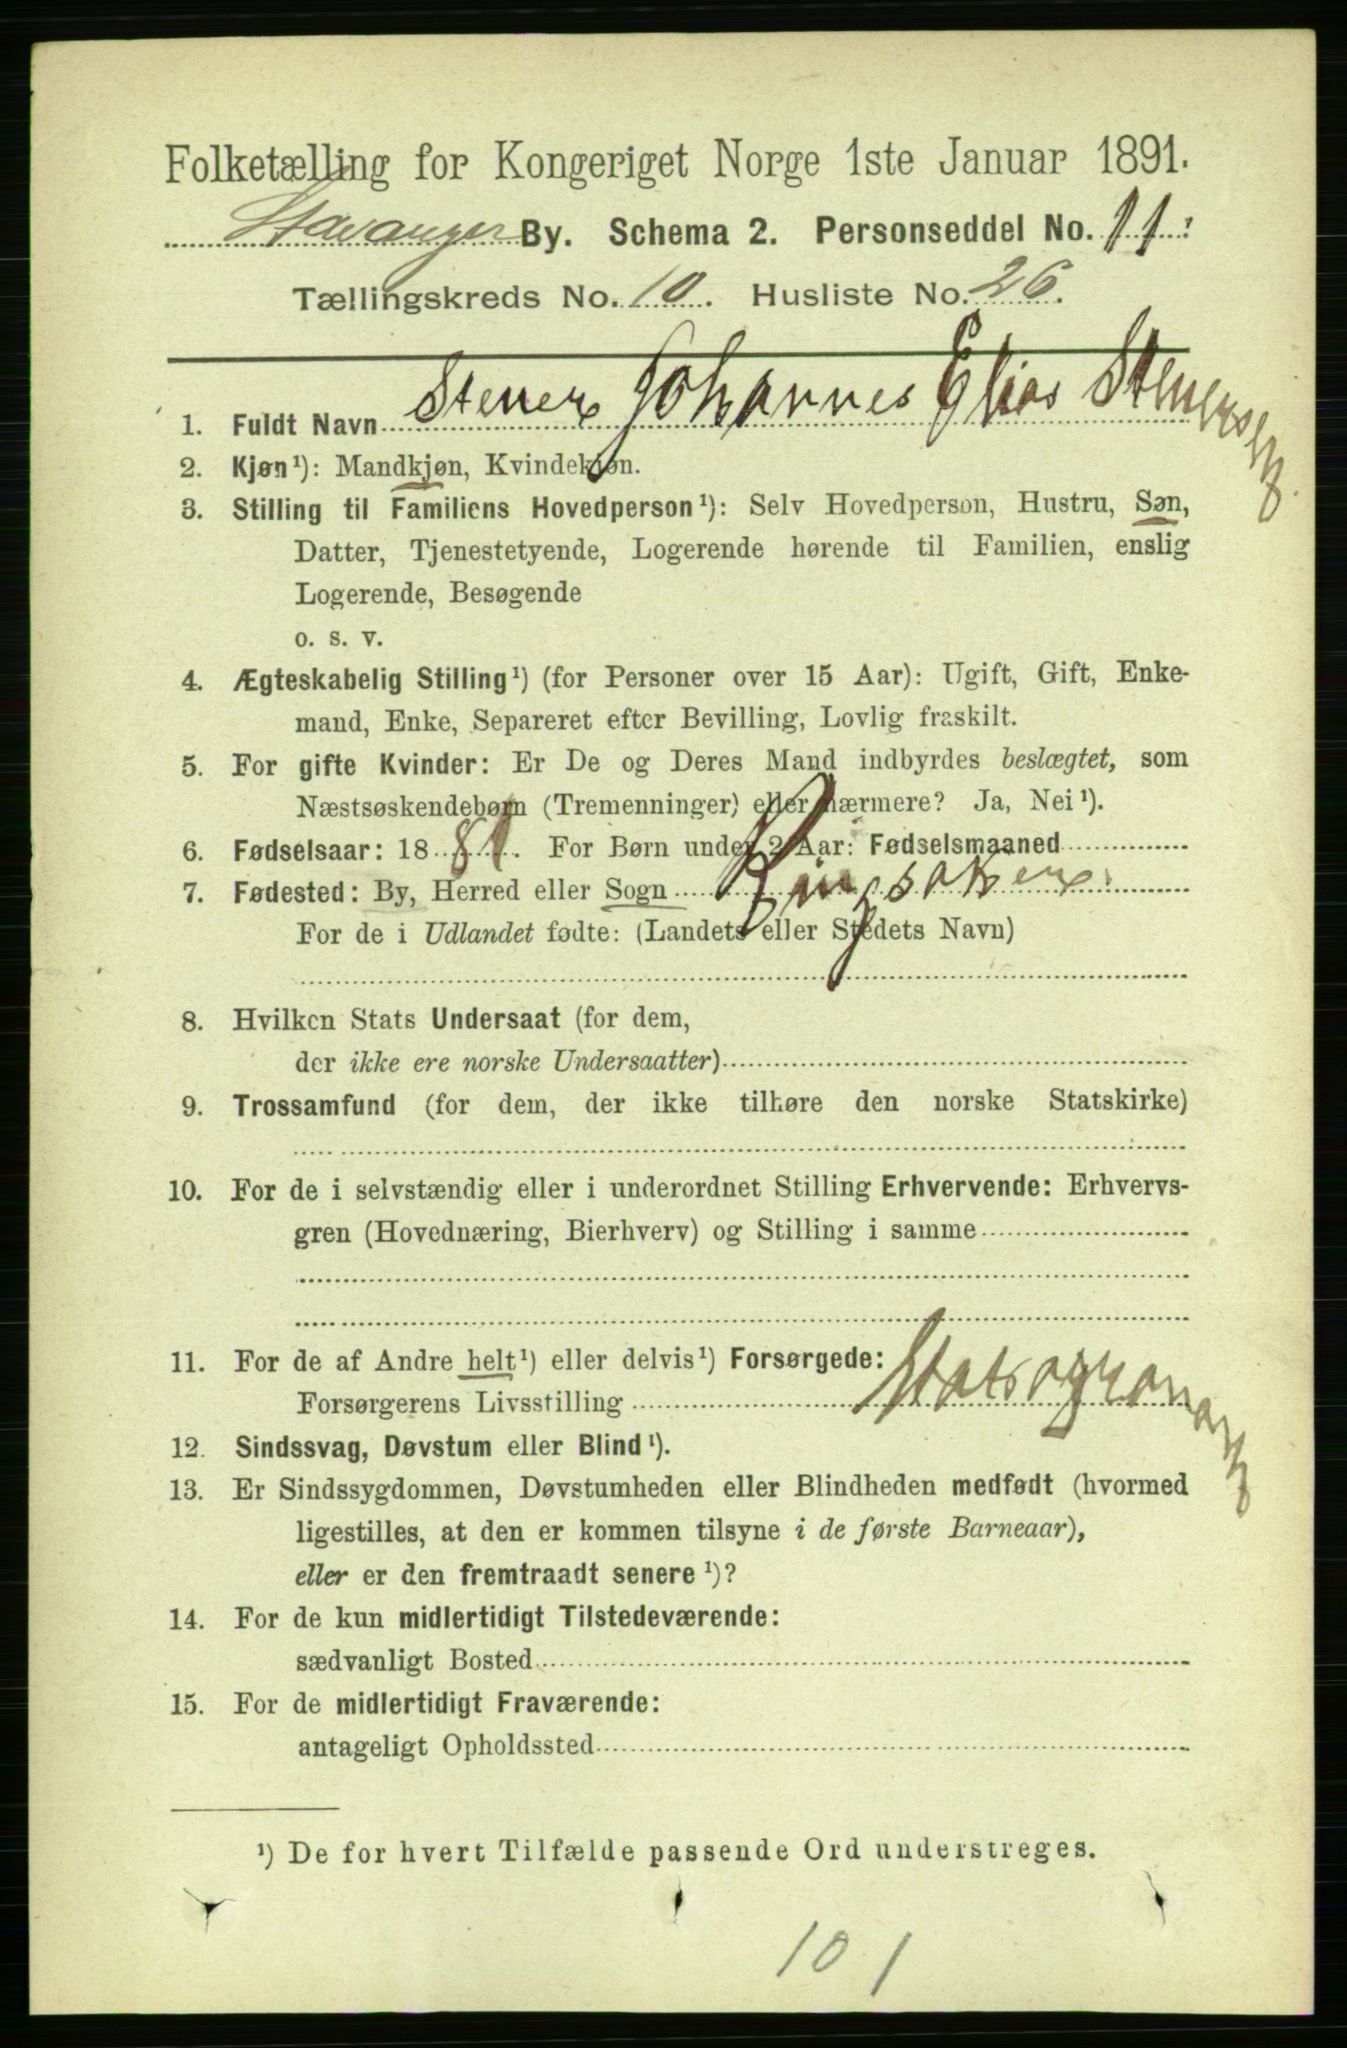 Folketælling for Kongeriget Norge 1ste Januar 1891.
Stavanger By. Schema 2. Personseddel No. 11.
Tællingskreds No. 10. Husliste No. 26.
1. Fuldt Navn Stener Johannes Elias Stenersen
2. Kjøn¹): Mandkjøn, Kvindekjøn.
3. Stilling til Familiens Hovedperson¹): Selv Hovedperson, Hustru, Søn,
Datter, Tjenestetyende, Logerende hørende til Familien, enslig
Logerende, Besøgende
o. s. v.
4. Ægteskabelig Stilling¹) (for Personer over 15 Aar): Ugift, Gift, Enke-
mand, Enke, Separeret efter Bevilling, Lovlig fraskilt.
5. For gifte Kvinder: Er De og Deres Mand indbyrdes beslægtet, som
Næstsøskendebørn (Tremenninger) eller nærmere? Ja, Nei¹).
6. Fødselsaar: 1881. For Børn under 2 Aar: Fødselsmaaned
7. Fødested: By, Herred eller Sogn Ringsaker
For de i Udlandet fødte: (Landets eller Stedets Navn)
8. Hvilken Stats Undersaat (for dem,
der ikke ere norske Undersaatter)
9. Trossamfund (for dem, der ikke tilhøre den norske Statskirke)
10. For de i selvstændig eller i underordnet Stilling Erhvervende: Erhvervs-
gren (Hovednæring, Bierhverv) og Stilling i samme
11. For de af Andre helt¹) eller delvis¹) Forsørgede:
Forsørgerens Livsstilling Statsagronom
12. Sindssvag, Døvstum eller Blind¹).
13. Er Sindssygdommen, Døvstumheden eller Blindheden medfødt (hvormed
ligestilles, at den er kommen tilsyne i de første Barneaar),
eller er den fremtraadt senere¹)?
14. For de kun midlertidigt Tilstedeværende:
sædvanligt Bosted
15. For de midlertidigt Fraværende:
antageligt Opholdssted
¹) De for hvert Tilfælde passende Ord understreges.
101